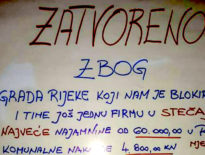 ZATVORENO
ZBOG
GRADA RIJEKE KOJI NAM JE BLOKI
I TIME JOŠ JEDNU FIRMU U STEČA
NAJVEĆE NAJAMNINE OD 60.000,00
KOMUNALNE 4.800,00 KN